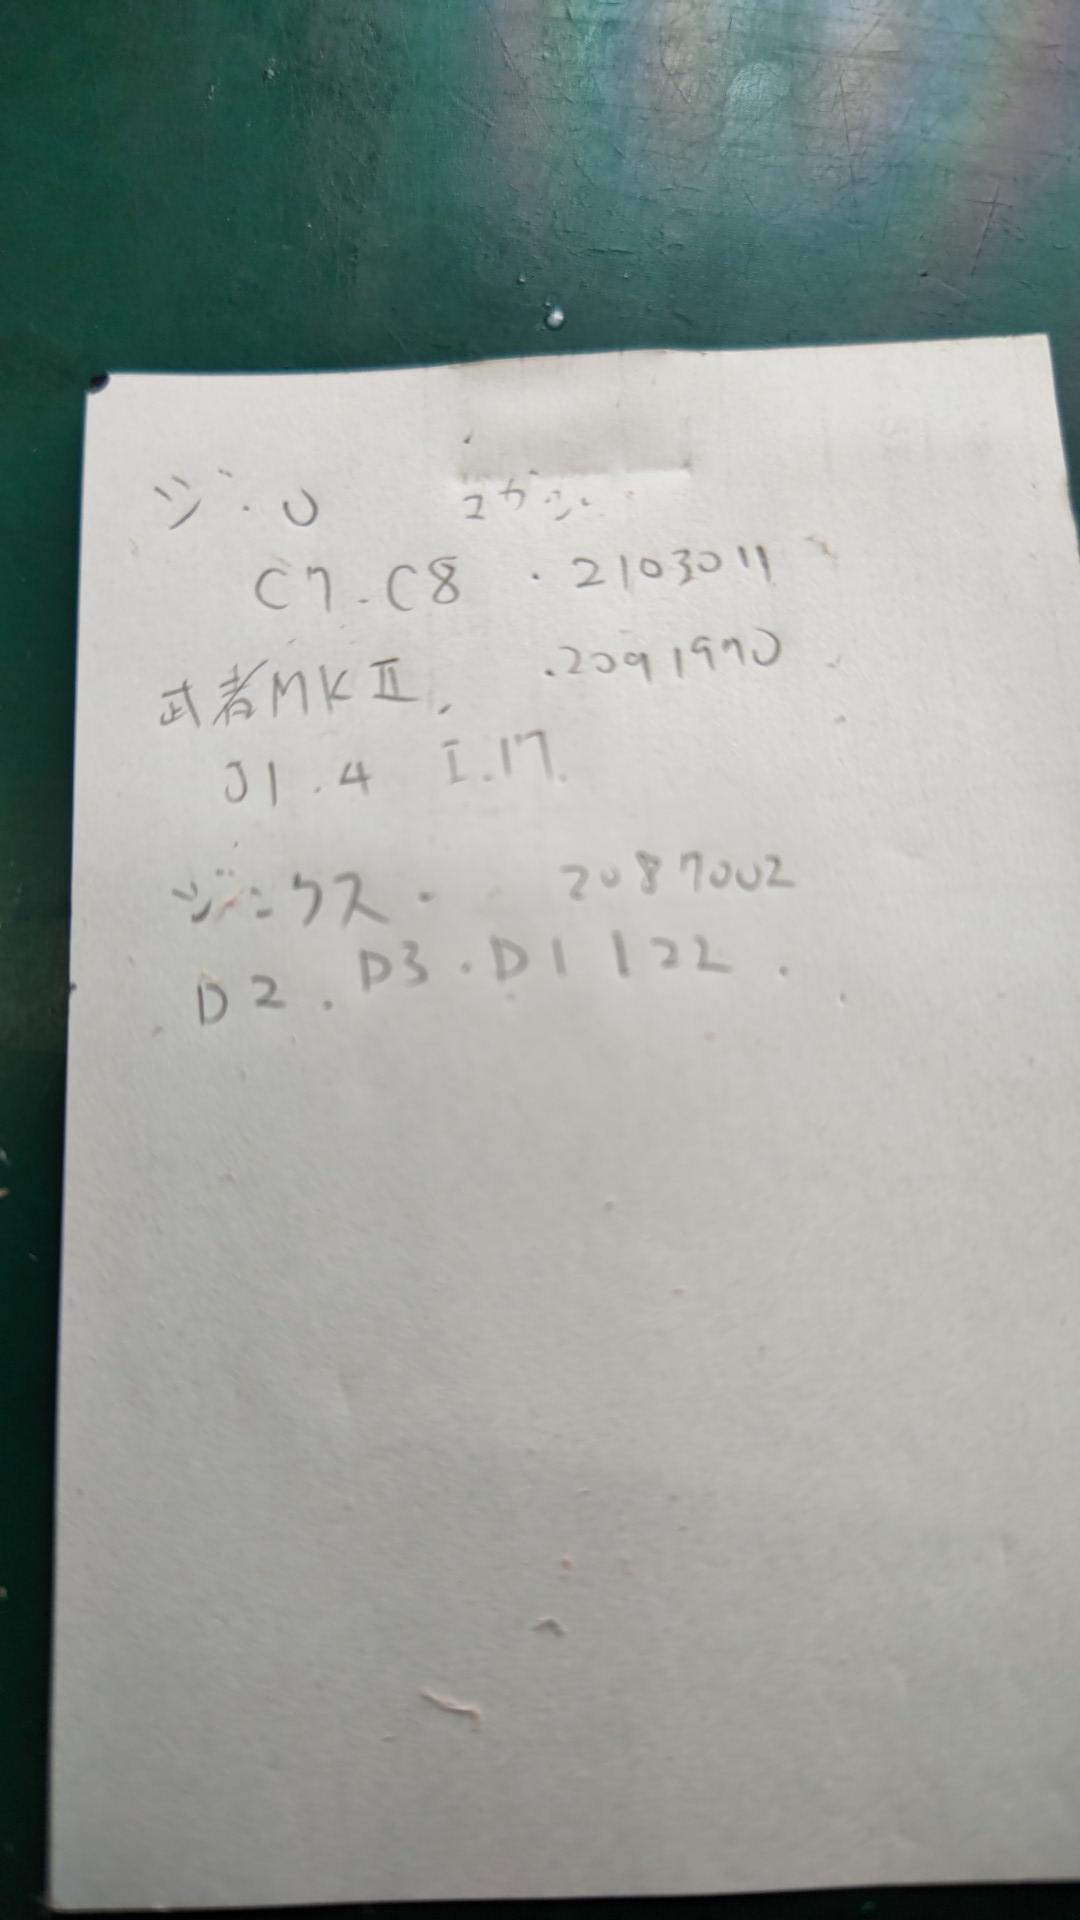 ジ・O マガジン
C7.C8 ・2103011
武者MKⅡ. .2091970
J1.4 I.17.
ジンクス・ 2087002
D2.D3.D1 122.